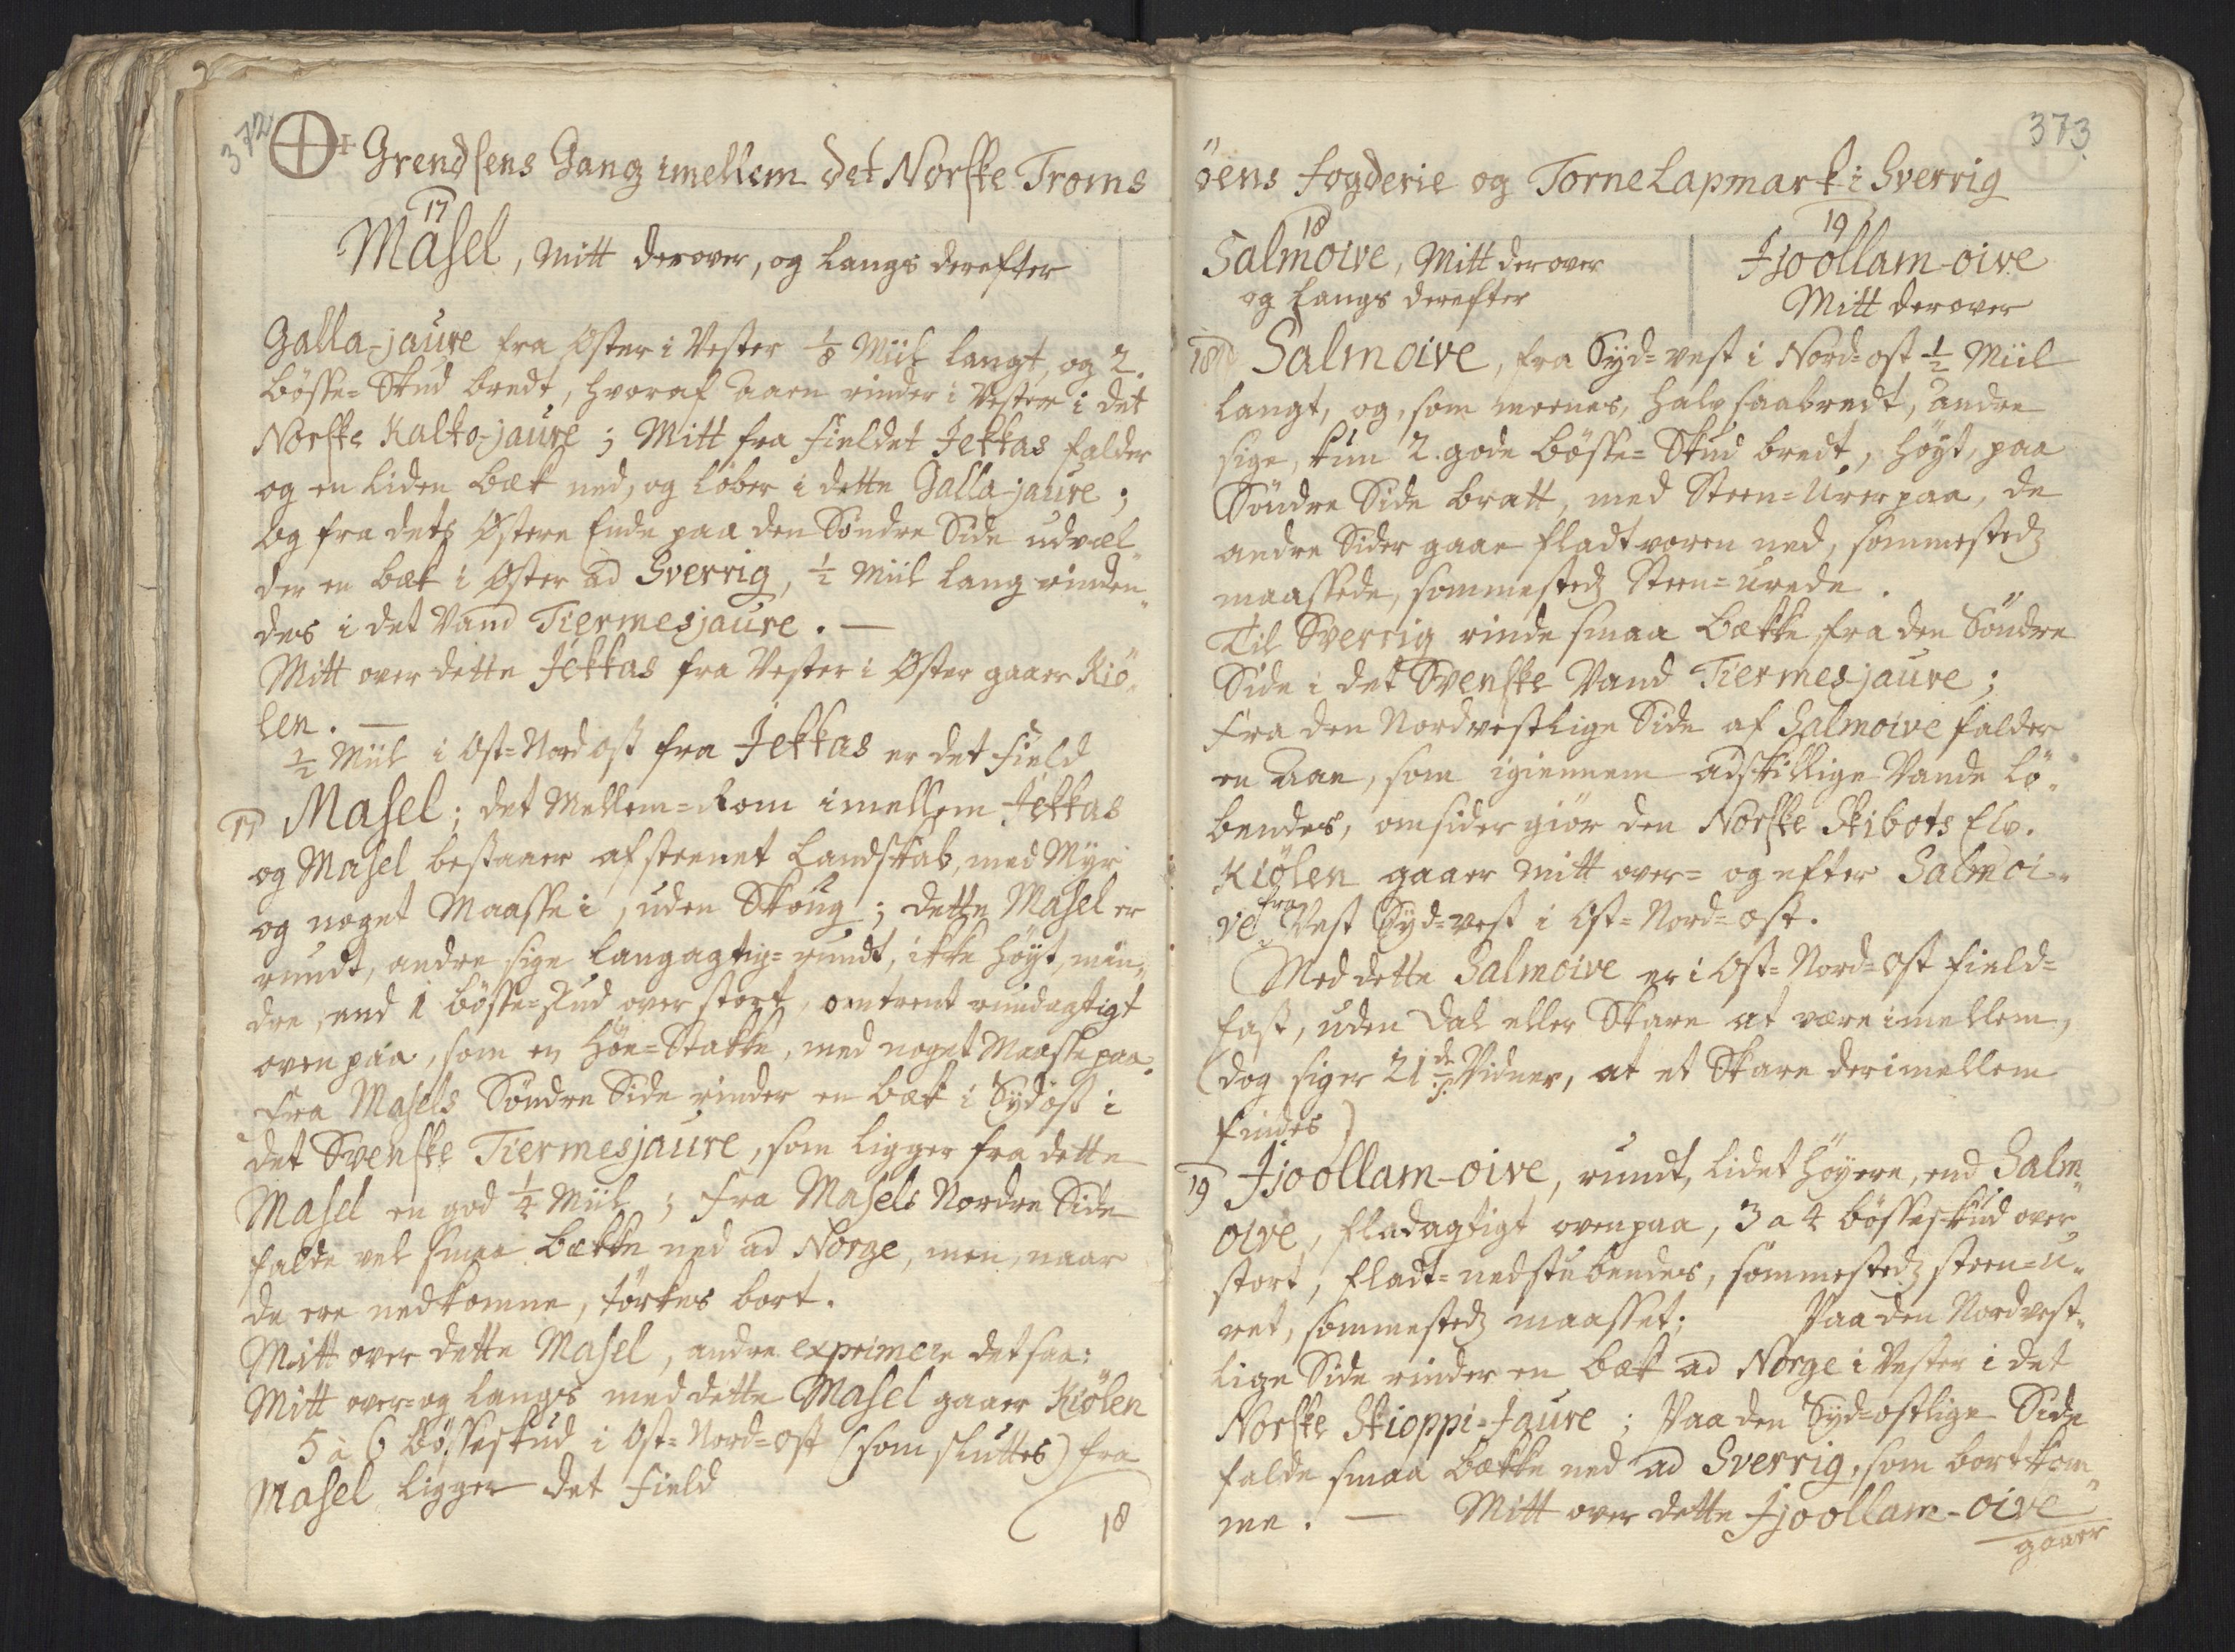 372
1 Grendsens Gang imellem det Norske Troms
17
Masel, mitt derover, og langs derefter
Galla-jaure fra Øster i Vester 1/8 Miil langt, og 2.
bösse=Skud bredt, hvoraf Aaen rinder i Vester i det
Norske Kalko-jaure; Mitt fra Fieldet Jekkas falder
og en liden bæk ned, og löber i dette Galla-jaure;
Og fra dets Østere Ende paa den Söndre Side udvæl„
der en bæk i Øster ad Sverrig, 1/2 Miil lang rinden„
des i det Vand Tiermesjaure. —
Mitt over dette Jekkas fra Vester i Øster gaaer Kiö„
len. —
1/2 Miil i Ost=Nordost fra Jekkas er det Field
17 Masel; det Mellem=Rom imellem Jekkas
og Masel bestaaer af steenet Landskab, med Myr
og noget Maasse i, uden Skoug; dette Masel er
rundt, andre sige langagtig=rundt, ikke höyt, min„
dre, end 1 bösse=Skud over stort, omtrent rundagtigt
oven paa, som en Höe=Stakke, med noget Maasse paa.
Fra Masels Söndre Side rinder en bæk i Sydost i
det Svenske Tiermesjaure, som ligger fra dette
Masel en god 1/4 Miil; Fra Masels Nordre Side
falde vel smaa bække ned ad Norge, men, naar
de ere nedkomne, törkes bort.
Mitt over dette Masel, andre exprimere det saa:
Mitt over= og langs med dette Masel gaaer Kiölen
5 à 6 bösseskud i Ost=Nord=Ost (som sluttes) fra
Masel ligger det Field
18
373.
öens Fogderie og Torne Lapmark i Sverrig
18
Salmoive, Mitt derover
og langs derefter
19
Jjoollam-oive
Mitt derover
18 Salmoive, fra Syd=vest i Nord=ost 1/2 Miil
langt, og, som meenes, halv saa bredt, andre
sige, kun 2. gode bösse=Skud bredt, höyt, paa
Söndre Side bratt, med Steen=Urer paa, de
andre Sider gaae fladtvoren ned, sommestedz
maassede, sommestedz Steen=urede.
Til Sverrig rinde smaa bække fra den Söndre
Side i det Svenske Vand Tiermesjaure;
Fra den Nordvestlige Side af Salmoive falder
en Aae, som igiennem adskillige Vande lö„
bendes, omsider giör den Norske Skibots Elv.
Kiölen gaaer mitt over= og efter Salmoi„
ve fra Vest Syd=vest i Ost=Nord=Ost.
Med dette Salmoive er i Ost=Nord=Ost field=
fast, uden Dal eller Skare at være imellem,
(dog siger 21de Vidner, at et Skare derimellem
findes)
19 Jjoollam-oive, rundt, lidet höyere, end Salm„
oive, fladagtigt oven paa, 3 a 4 bösseskud over
stort, fladt=nedstubendes, sommestedz steen=u„
ret, sommestedz maasset; Paa den Nordvest„
lige Side rinder en bæk ad Norge i Vester i det
Norske Skioppi-Jaure; Paa den Syd=ostlige Side
falde smaa bække ned ad Sverrig, som bortkom„
me. — Mitt over dette Jjoollam-oive
gaaer